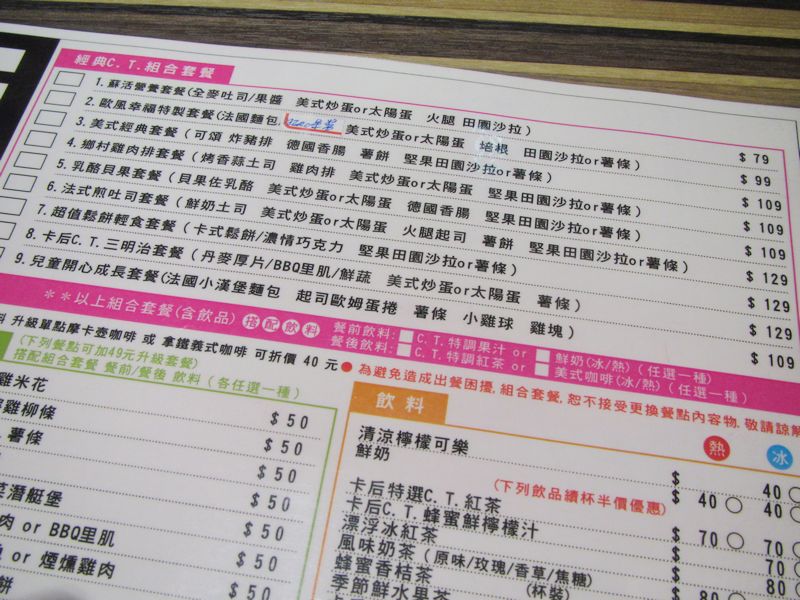 經典C.T.組合套餐
1. 蘇活營養套餐(全麥吐司/果醬 美式炒蛋or太陽蛋 火腿 田園沙拉) $79
2. 歐風幸福特製套餐(法國麵包 美式炒蛋or太陽蛋 培根 田園沙拉or薯條) $99
3. 美式經典套餐(可頌 炸豬排 德國香腸 薯餅 堅果田園沙拉or薯條) $109
4. 鄉村雞肉排套餐(烤香蒜土司 雞肉排 美式炒蛋or太陽蛋 堅果田園沙拉or薯條) $109
5. 乳酪貝果套餐(貝果佐乳酪 美式炒蛋or太陽蛋 德國香腸 堅果田園沙拉or薯條) $109
6. 法式煎吐司套餐(鮮奶土司 美式炒蛋or太陽蛋 火腿起司 薯餅 堅果田園沙拉or薯條) $129
7. 超值鬆餅輕食套餐(卡式鬆餅/濃情巧克力 堅果田園沙拉or薯條) $129
8. 卡后C.T.三明治套餐(丹麥厚片/BBQ里肌/鮮蔬 美式炒蛋or太陽蛋 薯條) $129
9. 兒童開心成長套餐(法國小漢堡麵包 起司歐姆蛋捲 薯條 小雞球 雞塊) $109
**以上組合套餐(含飲品) 搭配飲料
餐前飲料: C.T.特調果汁 or 鮮奶(冰/熱)(任選一種)
餐後飲料: C.T.特調紅茶 or 美式咖啡(冰/熱)(任選一種)
料 升級單點摩卡壺咖啡 或 拿鐵義式咖啡 可折價 40 元
●為避免造成出餐困擾,組合套餐,恕不接受更換餐點內容物,敬請諒解
(下列餐點可加49元升級套餐)
搭配組合套餐 餐前/餐後 飲料(各任選一種)
雞米花 $50
雞柳條 $50
薯條 $50
潛艇堡 $50
肉 or BBQ里肌 $50
or 煙燻雞肉 $50
餅
飲料
熱 冰
清涼檸檬可樂 $ 40
鮮奶 $ 40 40
(下列飲品續杯半價優惠)
卡后特選C.T.紅茶 $ 70 70
卡后C.T.蜂蜜鮮檸檬汁 $ 70
漂浮冰紅茶 $ 80
風味奶茶(原味/玫瑰/香草/焦糖) $ 80
蜂蜜香桔茶 (杯裝)
季節鮮水果茶